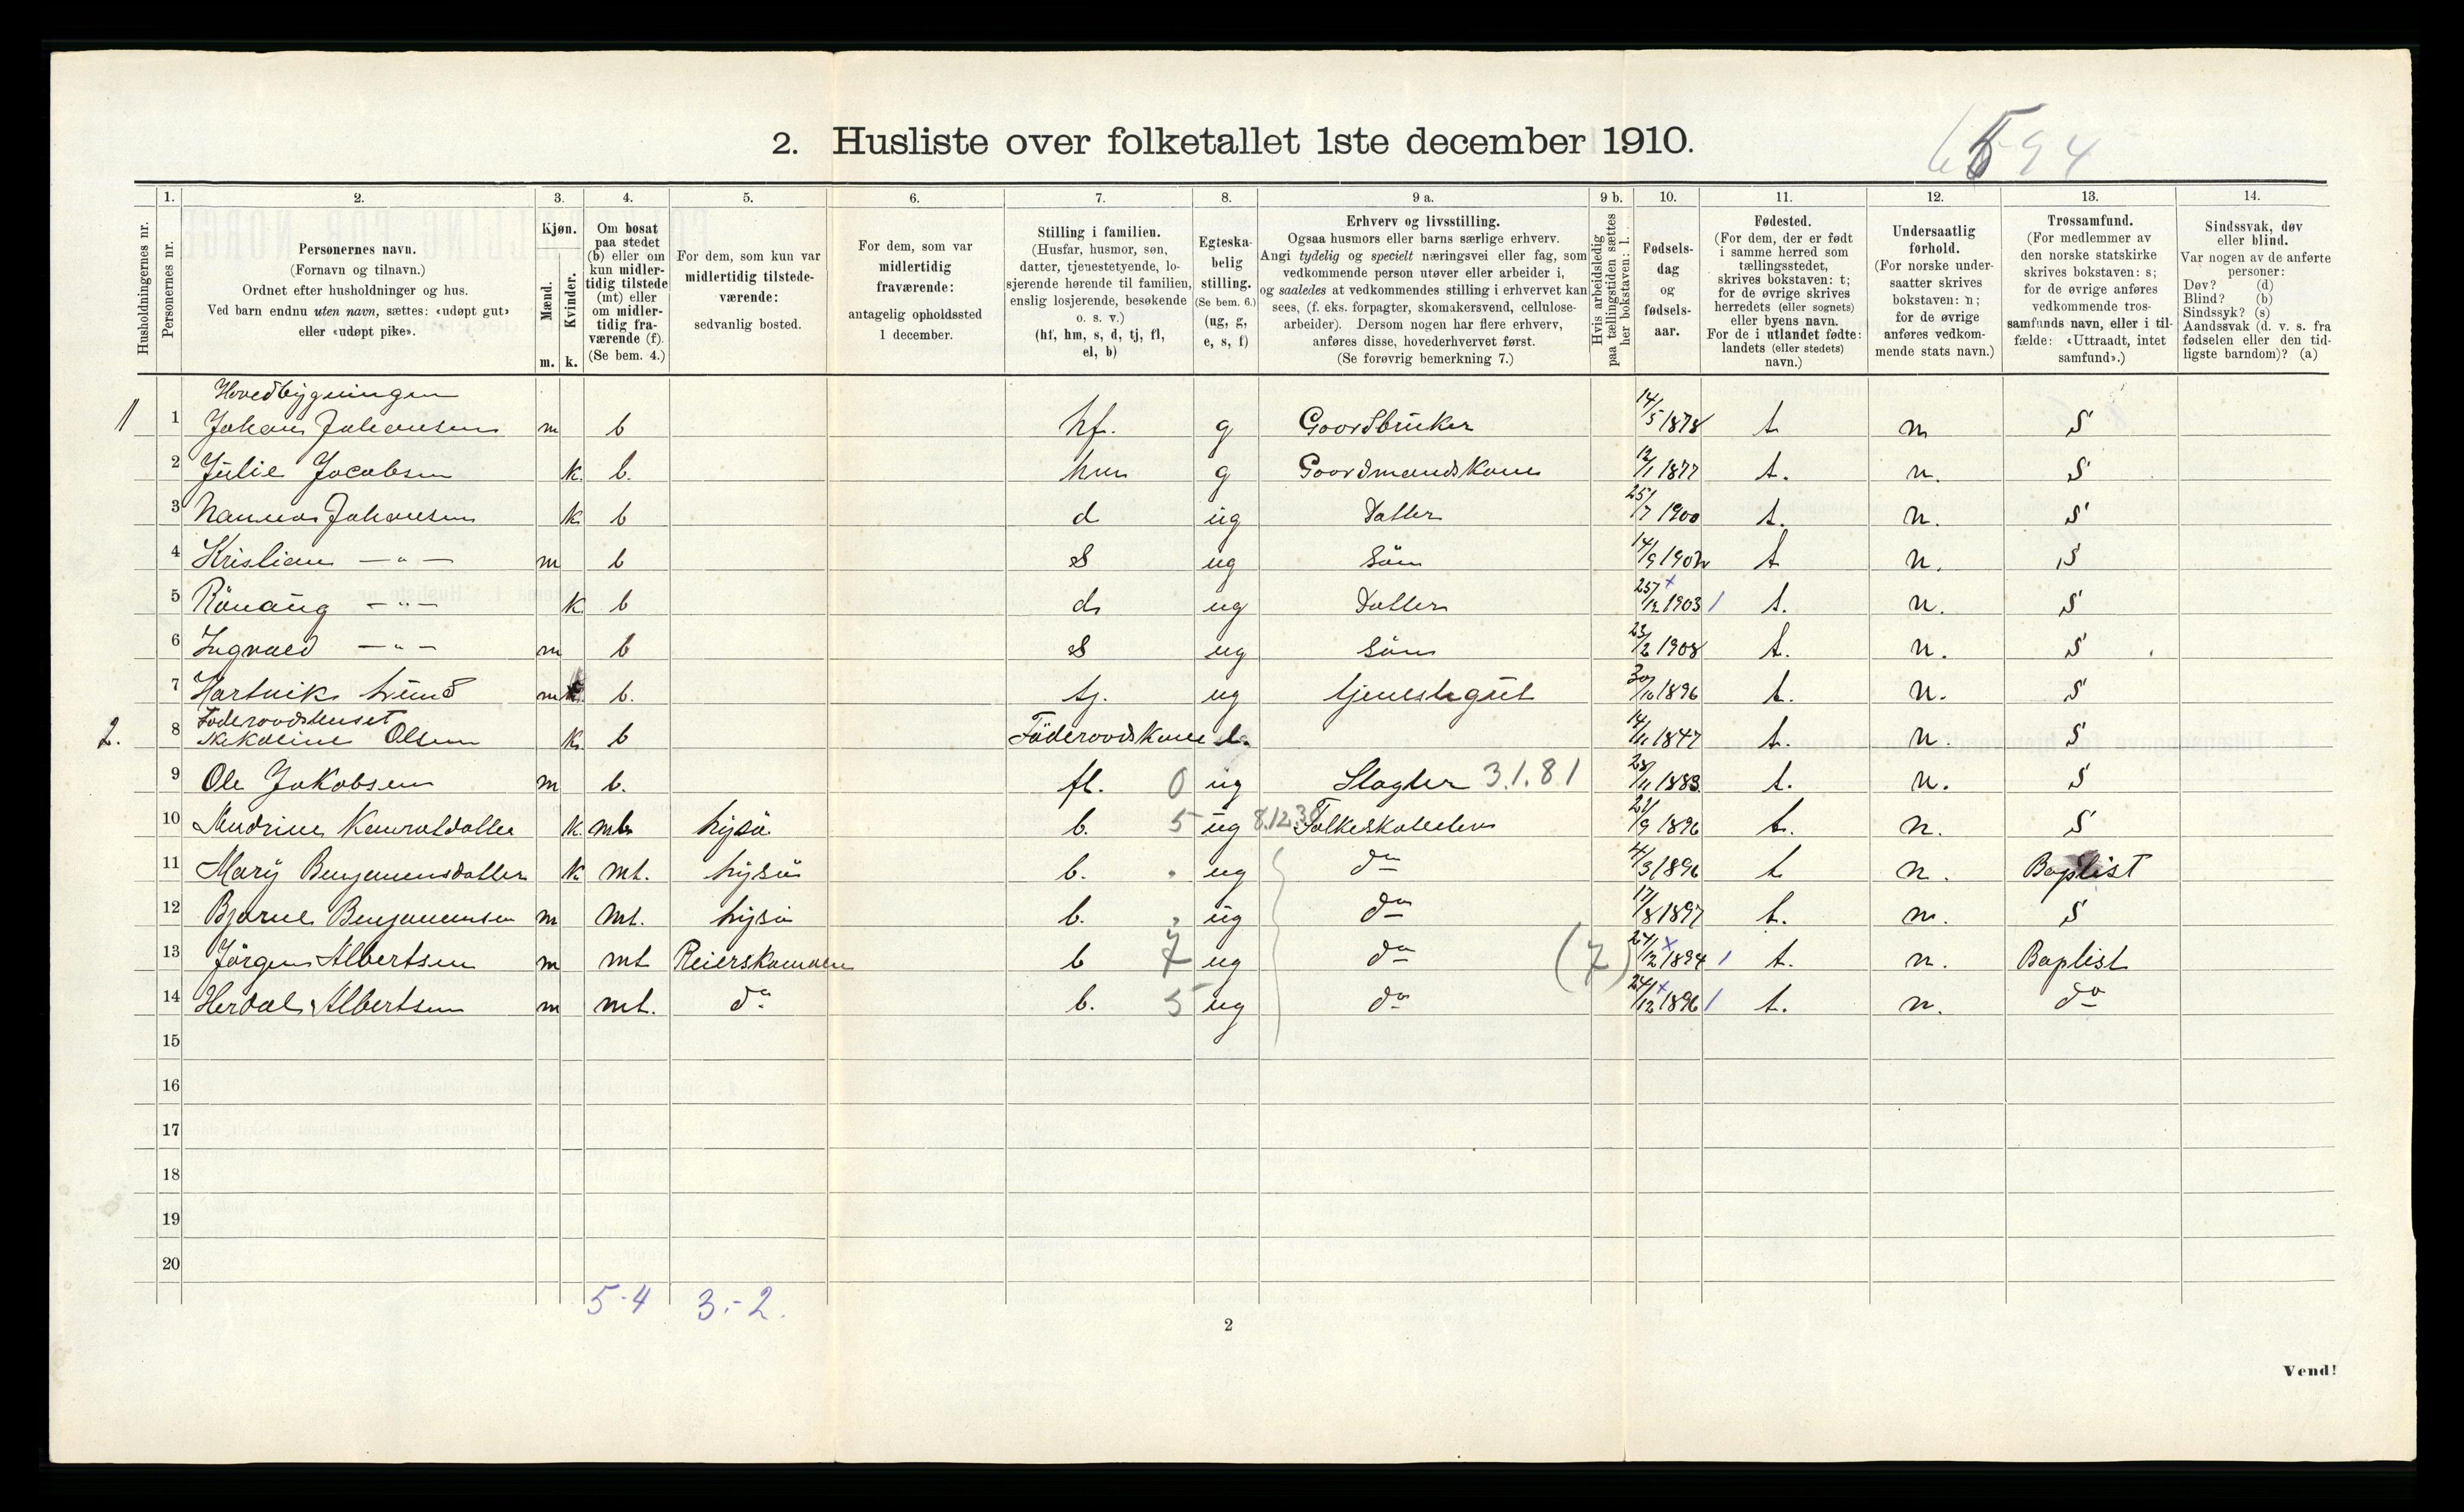 2. Husliste over folketallet 1ste december 1910.
6594
Husholdningernes nr.
1. Personernes nr.
2. Personernes navn. (Fornavn og tilnavn.) Ordnet efter husholdninger og hus. Ved barn endnu uten navn, sættes: «udøpt gut» eller «udøpt pike».
3. Kjøn. Mænd. m. Kvinder. k.
4. Om bosat paa stedet (b) eller om kun midlertidig tilstede (mt) eller om midlertidig fraværende (f). (Se bem. 4.)
5. For dem, som kun var midlertidig tilstedeværende: sedvanlig bosted.
6. For dem, som var midlertidig fraværende: antagelig opholdssted 1 december.
7. Stilling i familien. (Husfar, husmor, søn, datter, tjenestetyende, losjerende hørende til familien, enslig losjerende, besøkende o. s. v.) (hf, hm, s, d, tj, fl, el, b)
8. Egteskabelig stilling. (Se bem. 6.) (ug, g, e, s, f)
9 a. Erhverv og livsstilling. Ogsaa husmors eller barns særlige erhverv. Angi tydelig og specielt næringsvei eller fag, som vedkommende person utøver eller arbeider i, og saaledes at vedkommendes stilling i erhvervet kan sees, (f. eks. forpagter, skomakersvend, cellulosearbeider). Dersom nogen har flere erhverv, anføres disse, hovederhvervet først. (Se forøvrig bemerkning 7.)
9 b. Hvis arbeidsledig paa tællingstiden sættes her bokstaven: l.
10. Fødselsdag og fødselsaar.
11. Fødested. (For dem, der er født i samme herred som tællingsstedet, skrives bokstaven: t; for de øvrige skrives herredets (eller sognets) eller byens navn. For de i utlandet fødte: landets (eller stedets) navn.)
12. Undersaatlig forhold. (For norske undersaatter skrives bokstaven: n; for de øvrige anføres vedkommende stats navn.)
13. Trossamfund. (For medlemmer av den norske statskirke skrives bokstaven: s; for de øvrige anføres vedkommende trossamfunds navn, eller i tilfælde: «Uttraadt, intet samfund».)
14. Sindssvak, døv eller blind. Var nogen av de anførte personer: Døv? (d) Blind? (b) Sindssyk? (s) Aandssvak (d. v. s. fra fødselen eller den tidligste barndom)? (a)
Hovedbygningen
1 Johan Johansen m b hf. g Goordbruker 14/5 1878 t n S
2 Julie Jacobsen k. b. hm g Goordmandskone 12/1 1877 t. n. S
3 Nanna Johansen k b d ug Datter 25/7 1900 t. n. S
4 Kristian — " — m b S ug Sön 14/9 1902 t n. S
5 Rönaug — " — k b d ug Datter 25/12 1903 1 t. n. S
6 Ingvald — " — m b S ug Sön 23/2 1908 t. n. S
7 Hartvik Lund m b. tj. ug tjenestegut 30/10 1896 t. n. S
Föderoodshuset
2. 8 Nikoline Olsen k. b Föderoodskone e. 14/11 1847 t. n. S
9 Ole Jakobsen m b. fl. 0 ug Slagter 3.1.81 28/11 1883 t. n. S
10 Andrine k. mt b. 5 ug 8.12.38 Folkeskoleelev 21/9 1896 t. n. S
11 Mary Benjamensdatter k mt. b. ug do 4/3 1896 t n. Baptist
12 Bjarne Benjamensen m mt. b. ug do 17/8 1897 t. n. S
13 Jörgen Albertsen m mt b 7 ug do (7) 24/12 1894 1 t. n. Baptist
14 Herdal Albertsen m mt. do b. 5 ug do 24/12 1896 1 t. n. do
15
16
17
18
19
20
5-4 3.-2.
2
Vend!